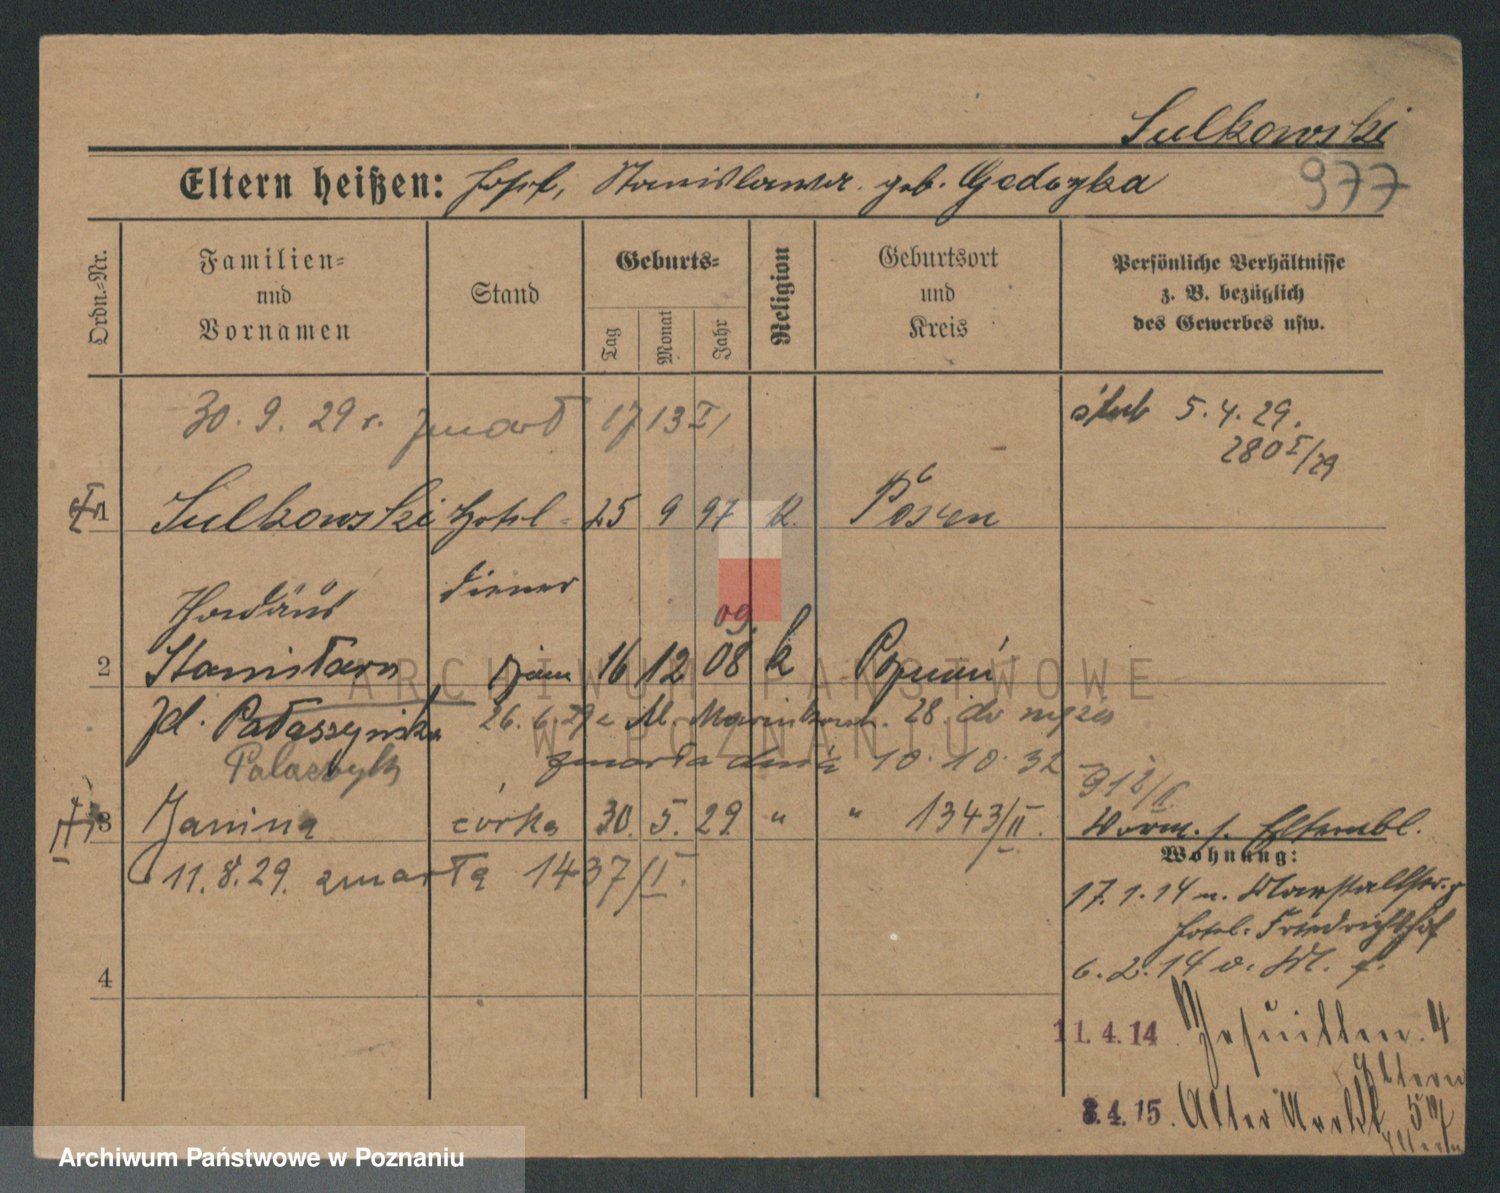 Sulkowski
977
Eltern heißen: Josef, Stanislawa geb. Gedozka
Ordn.-Nr.
Familien- und Vornamen
Stand
Geburts-
Tag
Monat
Jahr
Religion
Geburtsort und Kreis
Persönliche Verhältnisse z. B. bezüglich des Gewerbes usw.
30. 9. 29 r. zmarł 1713 I/
ślub 5. 4. 29.
280 I/29
1 Sulkowski Hotel- 25 9 97 k. Posen
6
diener
09.
2 Stanisława żona 16 12 08 k Poznań
zd. Pałaszyńska 26. 6. 29 z 28. do
Palaczyk zmarła dnia 10. 10. 32
3 Janina córka 30. 5. 29 " " 1343/II.
11. 8. 29. zmarła 1437/II.
Wohnung:
17. 1. 14 n. Marstallstr.
Hotel Friedrichshof
6. 2. 14 v.
4
11. 4. 14 Jesuitten. 4
Eltern
3. 4. 15. Alter Markt 57
Eltern
ARCHIWUM PAŃSTWOWE
W POZNANIU
Archiwum Państwowe w Poznaniu